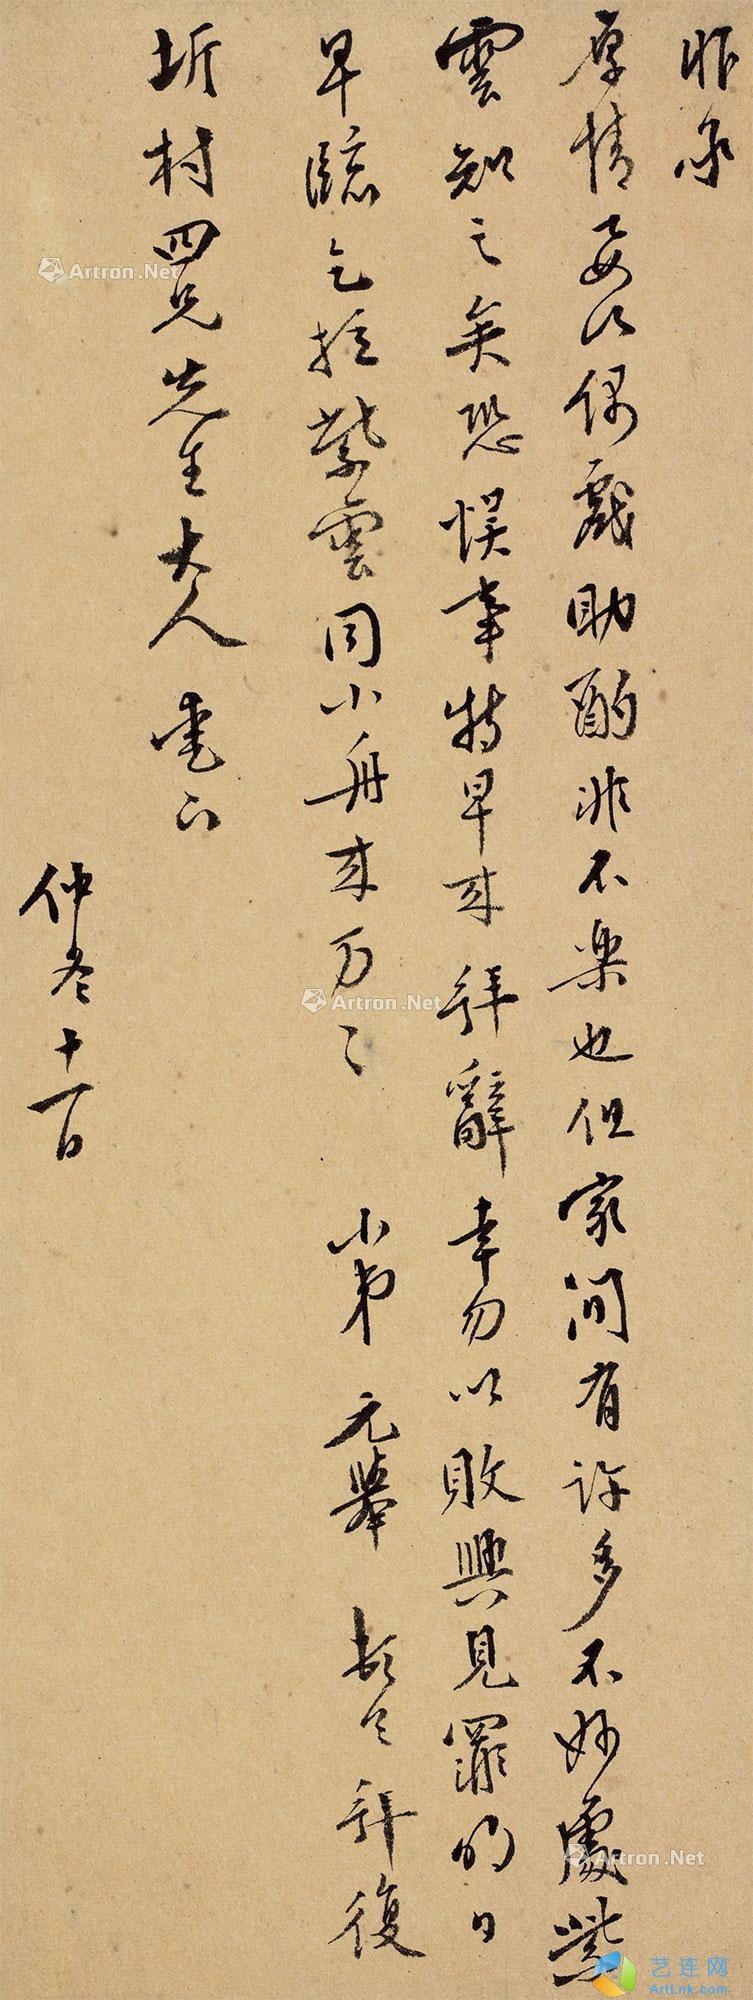 昨承
厚情 偶戲助酌非不樂也但家间有许多不妙處紫
雲知之矣恐悞事特早来拜辭幸勿以敗興見罪明日
早臨乞拉紫雲同小舟来万〻 小弟元舉 拜復
圻村四兄先生大人
仲冬十一日
Artron.Net
Artron.Net
Artron.Net
艺连网
ArtLnk.com